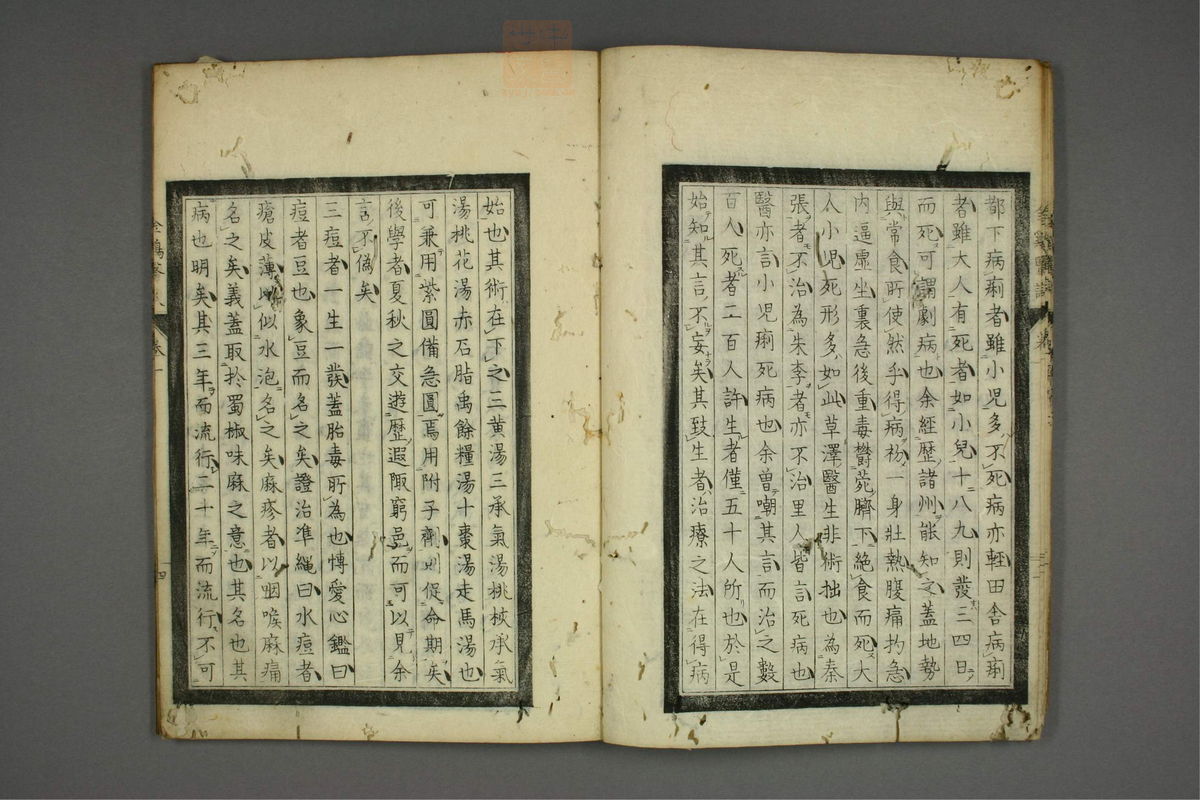 都下病痢者雖小児多不死病亦軽田舎病痢
者雖大人有死者如小兒十八九則發三四日
而死可謂劇病也余經歷諸州能知之蓋地勢
與常食所使然乎得病初一身壯熱腹痛灼急
内逼虚坐裏急後重毒欝苑臍下絶食而死大
人小児死形多如此草澤醫生非術拙也為秦
張者不治為朱李者亦不治里人皆言死病也
醫亦言小児痢死病也余曽嘲其言而治之數
百人死者二百人許生者僅五十人所也於是
始知其言不妄矣其致生者治療之法在得病
始也其術在下之三黄湯三承氣湯桃核承氣
湯桃花湯赤石脂禹餘糧湯十棗湯走馬湯也
可兼用紫圓備急圓焉用附子劑則促命期矣
後學者夏秋之交遊歴遐陬窮邑而可以見余
言不偽矣
三痘者一生一發蓋胎毒所為也愽愛心鑑曰
痘者豆也象豆而名之矣證治準縄曰水痘者
瘡皮薄似水泡名之矣麻疹者以咽喉麻痛
名之矣義蓋取於蜀椒味麻之意也其名也其
病也明矣其三年而流行二十年而流行不可